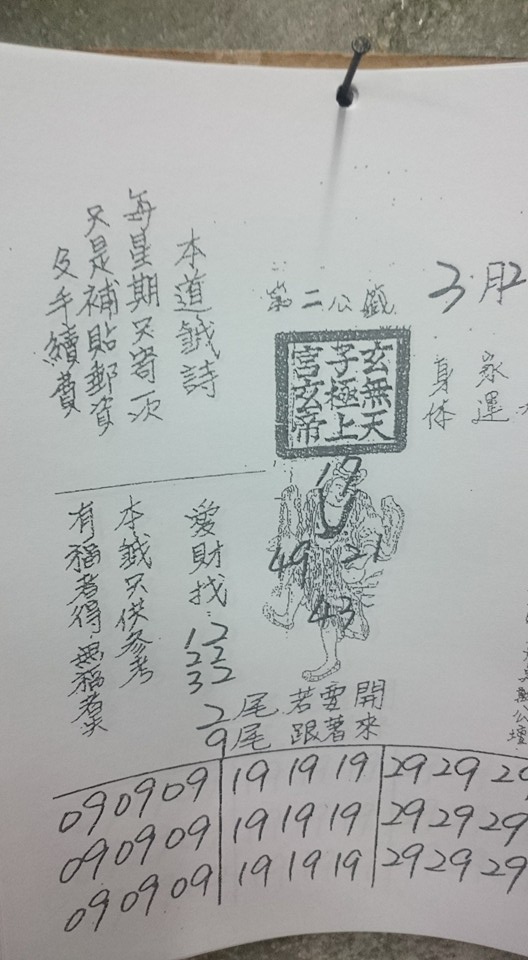 3月2
家運
身体
第二公籤
玄無天
子極上
宮玄帝
19
49 21
43
2尾若要開
9尾跟著來
本道籤詩
每星期只寄一次
只是補貼郵資
及手續費
愛財找:12
22
32
本籤只供參考
有福者得,無福者失
09 09 09 19 19 19 29 29 29
09 09 09 19 19 19 29 29 29
09 09 09 19 19 19 29 29 29